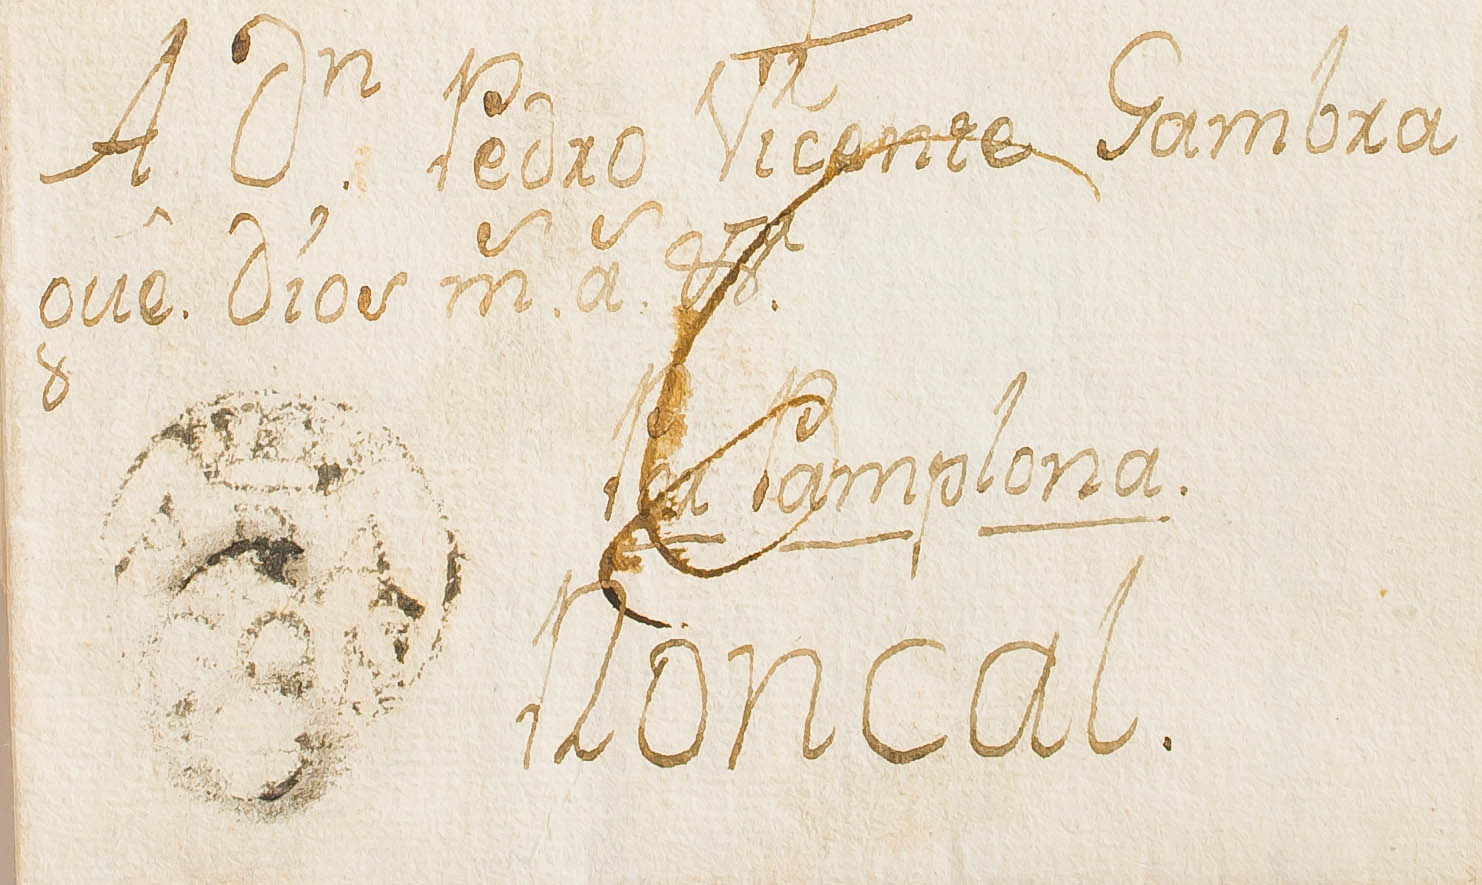 A Dn. Pedro Vicente Gambra
que. Dios m. a.
Pa Pamplona.
Roncal.